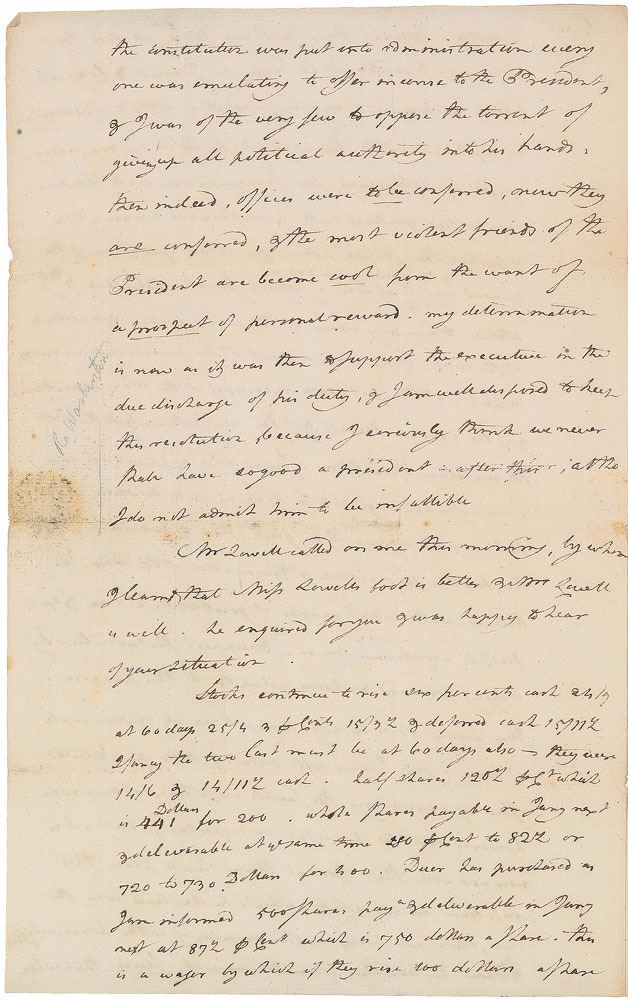 the constitution was put into administration every
one was emulating to offer incense to the President,
& I was of the very few to oppose the torrent of
giving up all political authority into his hands.
then indeed, offices were to be conferred, now they
are conferred, & the most violent friends of the
President are become cool from the want of
a prospect of personal reward. my determination
is now as it was then to support the executive in the
due discharge of his duty, & I am well disposed to keep
this resolution because I seriously think we never
shall have so good a president after this, altho
I do not admit him to be infallible
Mr Lowell called on me this morning, by whom
I learnd, that Miss Lowells foot is better & Mrs Lowell
is well. he enquired for you & was happy to hear
of your situation.
Stocks continue to rise six per cents cash 24/9
at 60 days 25/4 3 ⅌ Cents 15/3½ & deferred cash 15/11½
I fancy the two last must be at 60 days also – they were
14/6 & 14/11½ cash. half shares 120½ ⅌ Ct which
Dollars
is 441 for 200. whole shares payable in Jany next
& deliverable at ye same time 80 ⅌ Cent to 82½ or
720 to 730 Dollars for 400. Duer has purchased as
I am informed 500 shares paya & deliverable in Jany
next at 87½ ⅌ Cent which is 750 dollars a share. this
is a wager by which if they rise 100 dollars a share
R. Washington